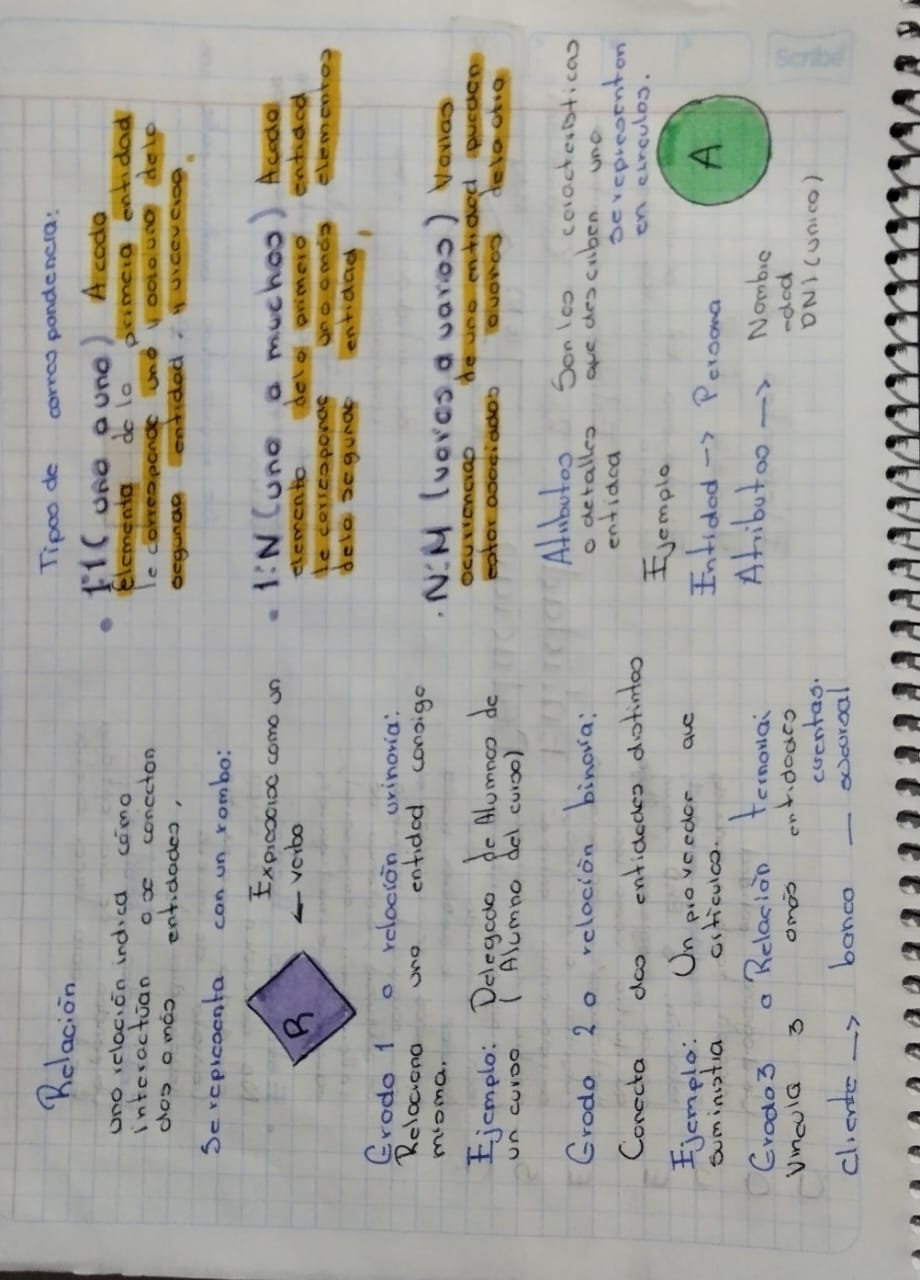 Relación
una relación indica cómo
interactúan o se conectan
dos o más entidades.
Se representa con un rombo:
Expresarse como un
R ← verbo
Grado 1 o relación urinaria:
Relaciona una entidad consigo
misma.
Ejemplo: Delegado de Alumnos de
un curso (Alumno del curso)
Grado 2 o relación binaria:
Conecta dos entidades distintas
Ejemplo: Un proveedor que
suministra artículos.
Grado 3 o Relación ternaria:
Vincula 3 o más entidades
cuentas.
cliente → banco — sucursal
Tipos de correspondencia:
• 1:1 (uno a uno) A cada
elemento de la primera entidad
le corresponde uno y solo uno de la
segunda entidad, y viceversa.
• 1:N (uno a muchos) A cada
elemento de la primera entidad
le corresponde uno o más elementos
de la segunda entidad,
. N:M (varos a varios) Varias
ocurrencias de una entidad pueden
estar asociadas a varias de la otra
Atributos Son las características
o detalles que describen una
entidad se representan
en círculos.
Ejemplo
Entidad → Persona A
Atributos → Nombre
-edad
DNI (unico)
Scribe